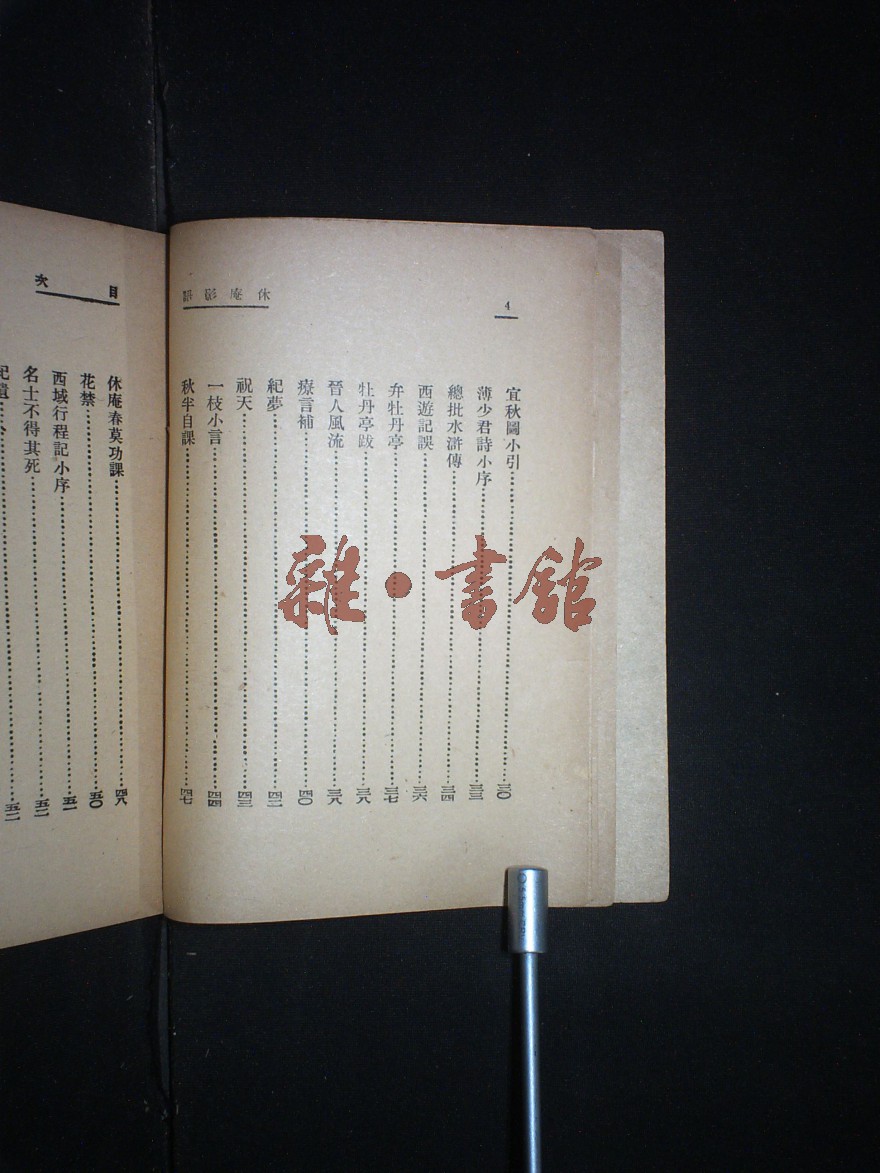 4
休庵影語
宜秋圖小引 三〇
薄少君詩小序 三三
總批水滸傳 三四
西遊記誤 三六
弁牡丹亭 三七
牡丹亭跋 三八
晉人風流 三八
療言補 四〇
紀夢 四二
祝天 四三
一枝小言 四四
秋半自課 四七
目次
休庵春莫功課 四八
花禁 五〇
西域行程記小序 五一
名士不得其死 五二
紀遺 五二
雜·書館